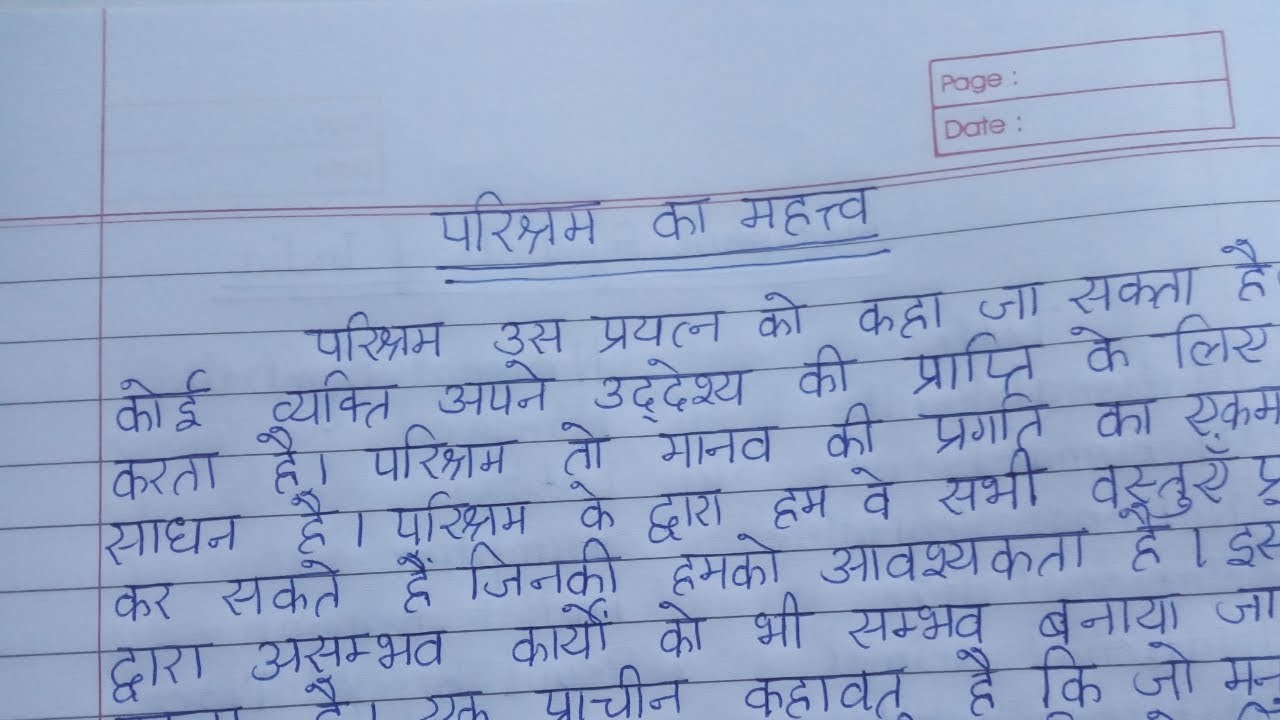 Page :
Date :
परिश्रम का महत्त्व
परिश्रम उस प्रयत्न को कहा जा सकता है।
कोई व्यक्ति अपने उद्देश्य की प्राप्ति के लिए
करता है। परिश्रम तो मानव की प्रगति का एकम
साधन है। परिश्रम के द्वारा हम वे सभी वस्तुएँ
कर सकते हैं जिनकी हमको आवश्यकता है। इस
द्वारा असम्भव कार्यों को भी सम्भव बनाया जा
है। एक प्राचीन कहावत है कि जो